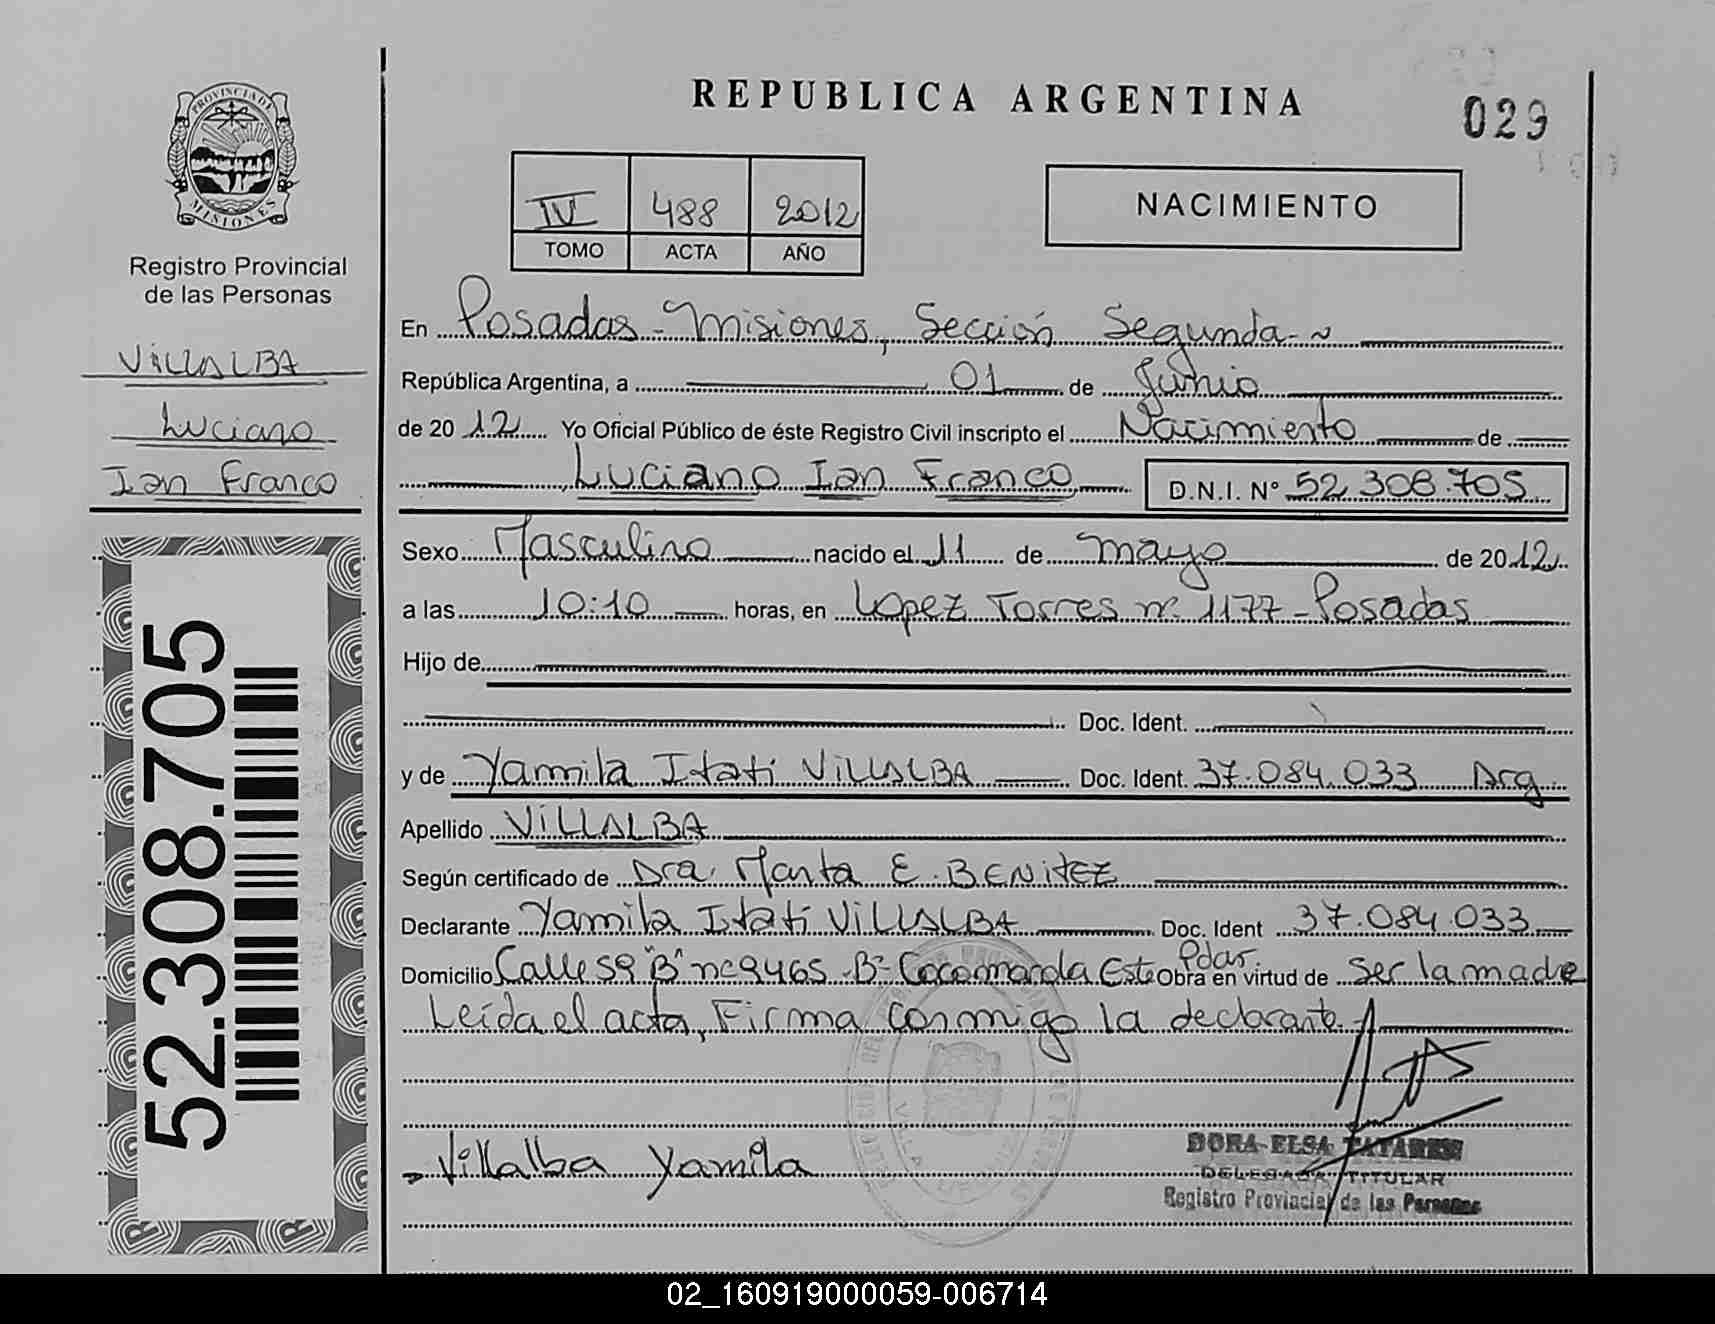 PROVINCIA DE
MISIONES
Registro Provincial
de las Personas
VILLALBA
Luciano
Ian Franco
52.308.705
REPUBLICA ARGENTINA
029
IV 488 2012
TOMO ACTA AÑO
NACIMIENTO
En Posadas - Misiones, Sección Segunda
República Argentina, a 01 de Junio
de 2012 Yo Oficial Público de éste Registro Civil inscripto el Nacimiento de
Luciano Ian Franco D.N.I. N° 52.308.705
Sexo Masculino nacido el 11 de mayo de 2012
a las 10:10 horas, en Lopez Torres nº 1177 - Posadas
Hijo de
Doc. Ident.
y de Yamila Itatí VILLALBA Doc. Ident. 37.084.033 Arg.
Apellido VILLALBA
Según certificado de Dra. Marta E. BENITEZ
Declarante Yamila Itatí VILLALBA Doc. Ident 37.084.033
Domicilio Calle 59 "B" nº 9465 - Bº Cocomarola Este Pdas. Obra en virtud de ser la madre
Leída el acta, Firma conmigo la declarante.
Villalba Yamila
DORA ELSA
DELEGADA TITULAR
Registro Provincial de las Personas
02_160919000059-006714